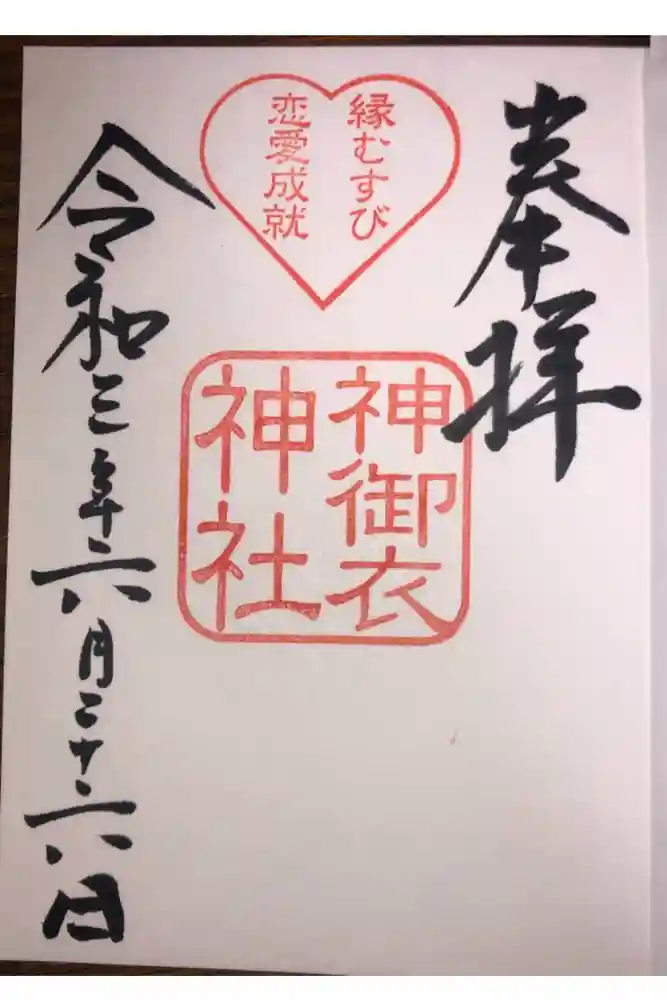 奉拝
縁むすび
恋愛成就
神御衣
神社
令和三年六月二十六日